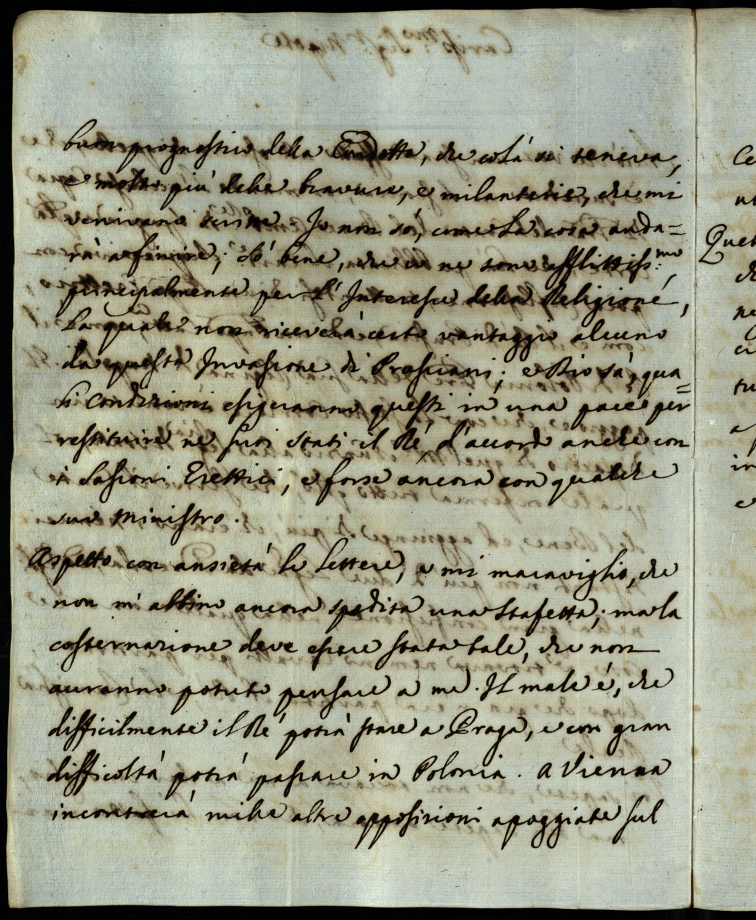 buon prognostico della Condotta, che colá si teneva,
e molto piú delle bravure, e milanterie, che mi
venivano scritte. Io non só, come la cosa anda=
rá a finire; só bene, che io ne sono afflittiss:mo,
principalmente per l'Interesse della Religione,
la quale non riceverá certo vantaggio alcuno
da questa Invasione di Prussiani; e Dio sá, qua=
li condizioni esigeranno questi in una pace per
restituire ne suoi stati il Ré, d'accordo anche con
i Sassoni Erettici, e forse ancora con qualche
suo Ministro.
Aspetto con ansietá le lettere, e mi maraviglio, che
non m'abbino ancora spedita una Staffetta; ma la
costernazione deve essere stata tale, che non
auranno potuto pensare a me. Il male é, che
difficilmente il Ré potrá stare a Praga, e con gran
difficoltá potrá passare in Polonia. A Vienna
incontrerá mille altre opposizioni apoggiate sul